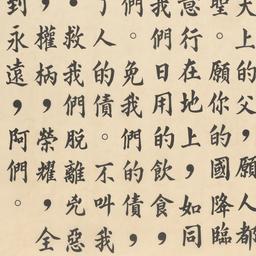 天上的父，願人都
聖。願你的國降臨
意行在地上，如同
我們日用的飲食，
們。免我們的債，
了人的債。不叫我
救我們脫離兇惡
，權柄，榮耀，全
到永遠，阿們。